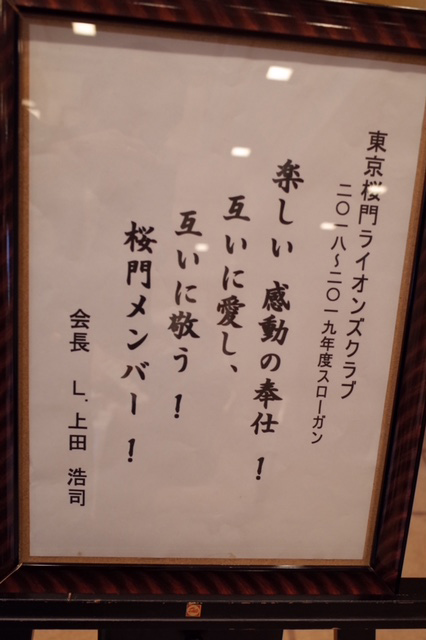 東京桜門ライオンズクラブ
二〇一八〜二〇一九年度スローガン
楽しい 感動の奉仕!
互いに愛し、
互いに敬う!
桜門メンバー!
会長 L.上田 浩司